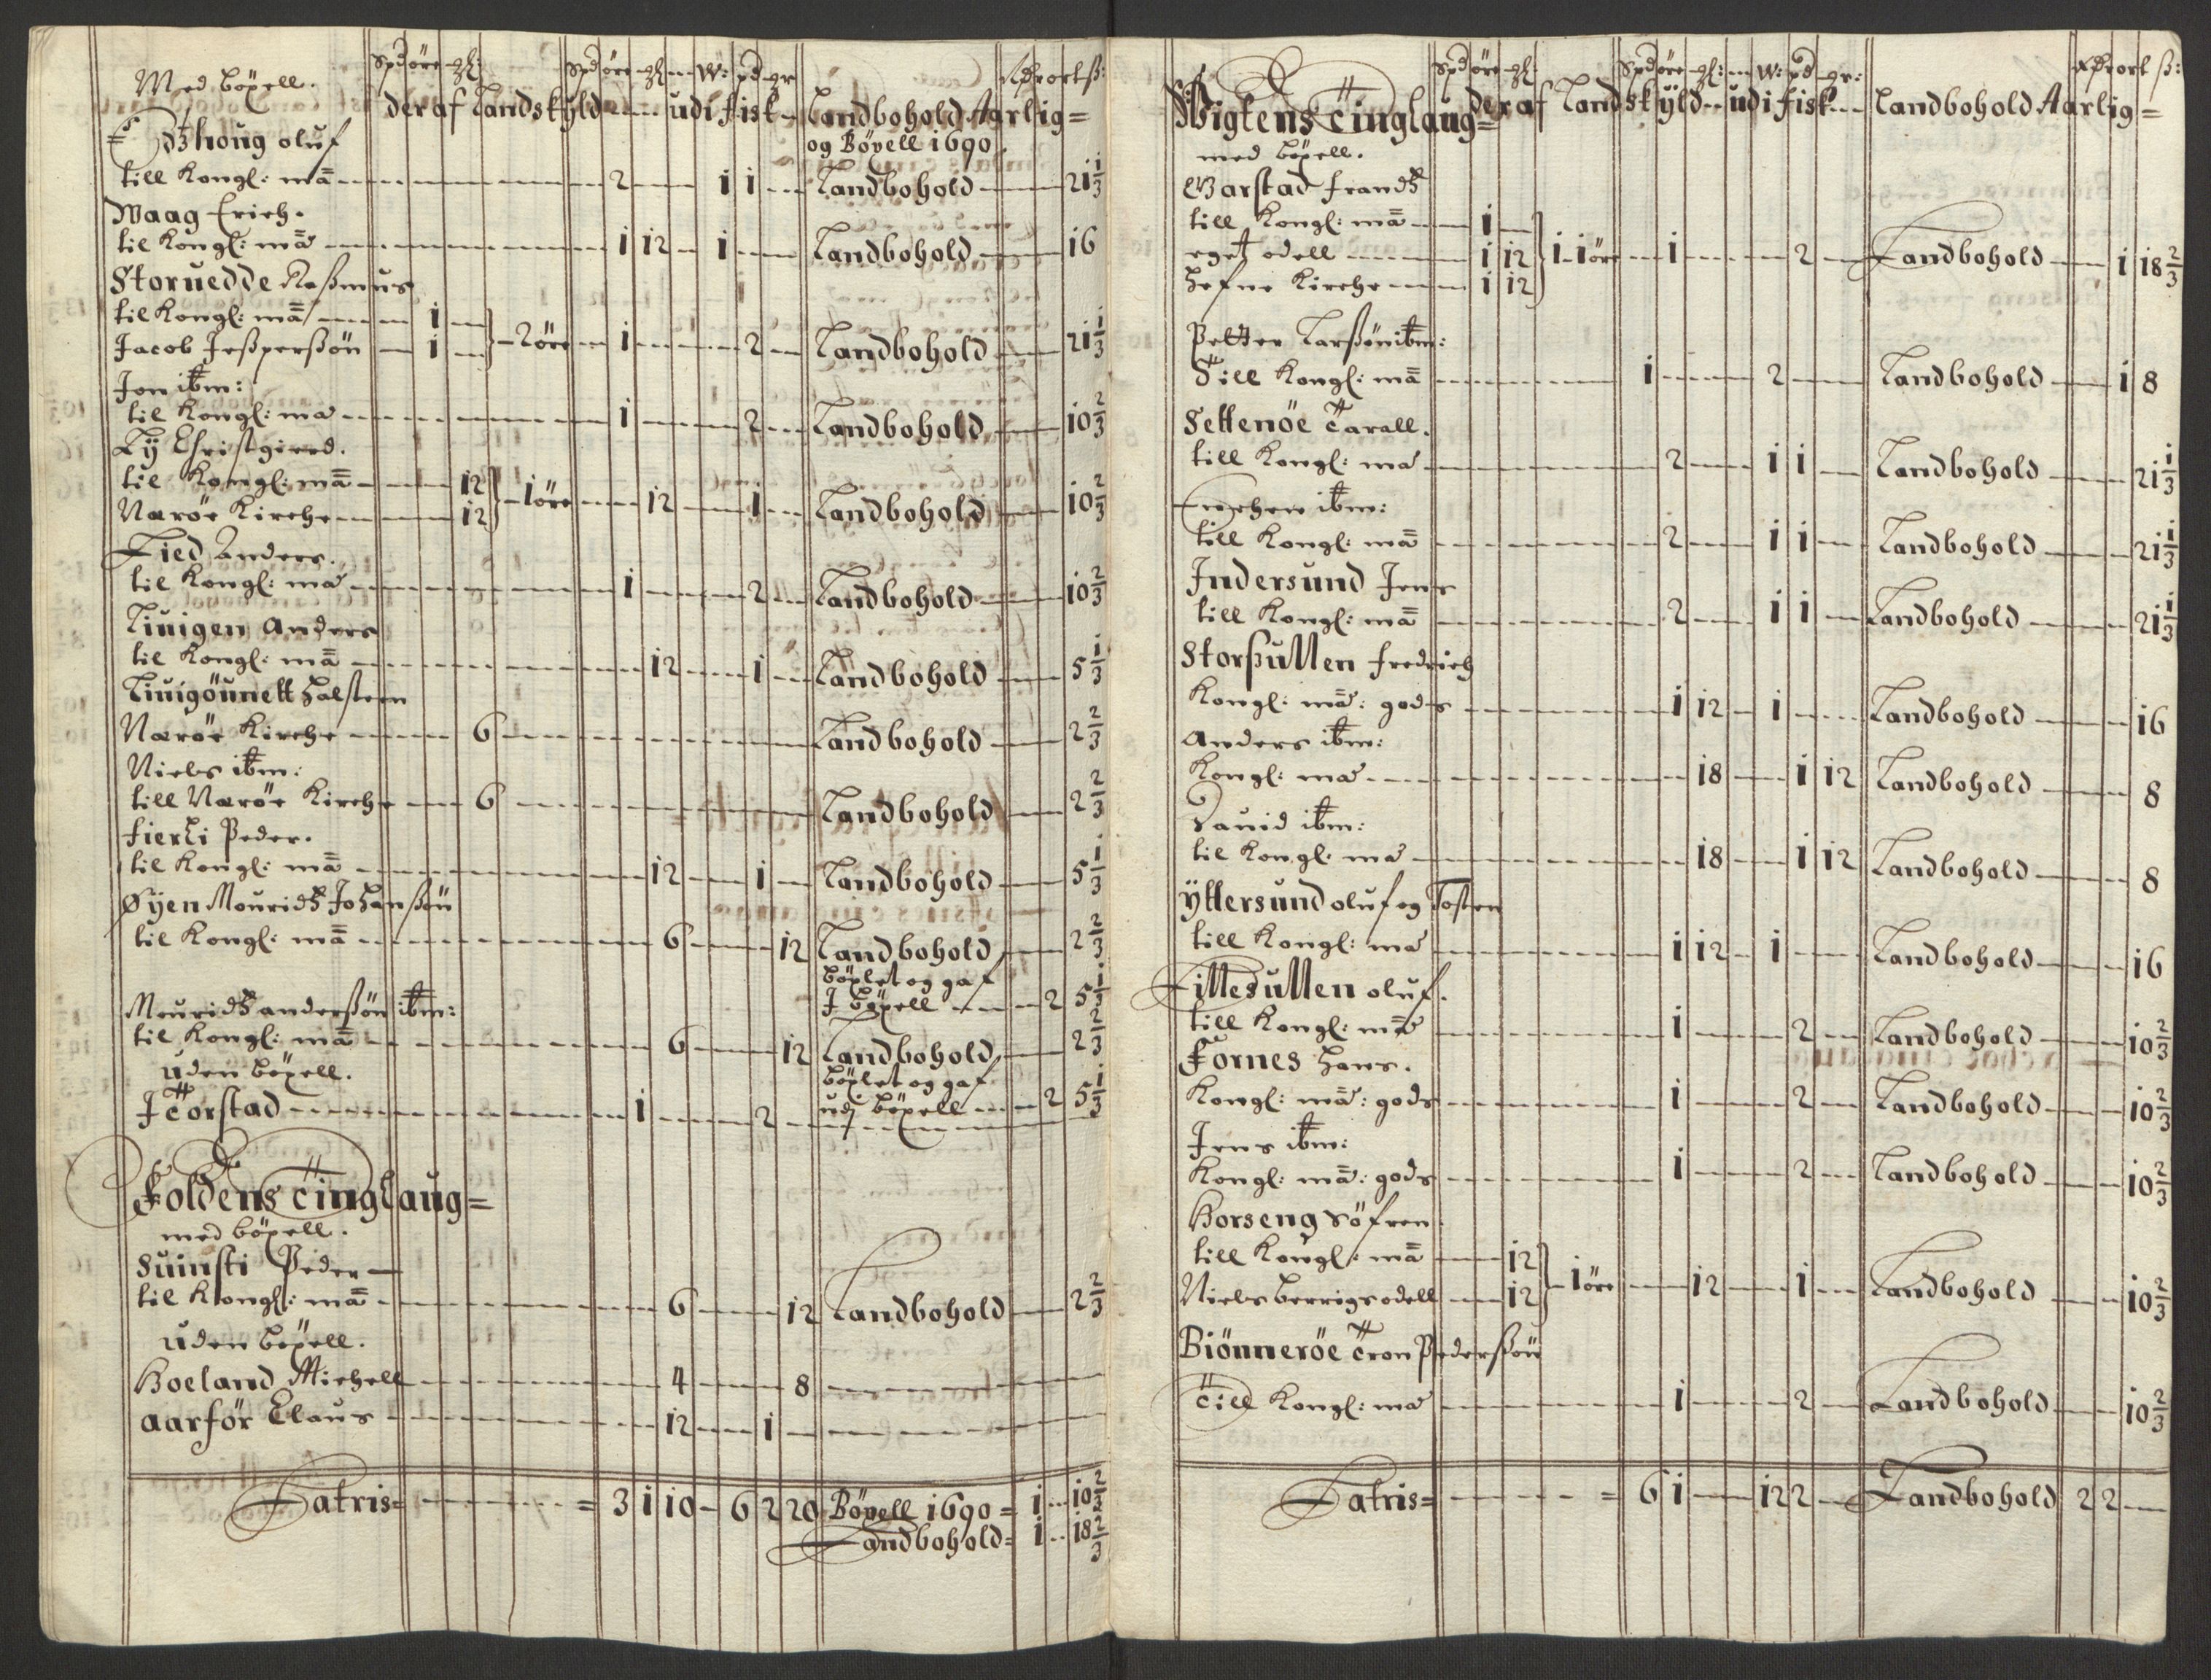 Med böxell.
Spd öre gl: Spd öre gl W: pd gr Rdr ort ß:
deraf Landskyld udi fisk Landbohold Aarlig =
og Böxell 1690
houg oluf
till Kongl: mã 2 1 1 Landbohold 21 1/3
Waag Erich.
til Kongl: mã 1 12 1 Landbohold 16
Storuedde Raßmus
til Kongl: mã 1
Jacob Jeßperßön 1 } 2 öre 1 2 Landbohold 21 1/3
Jon ibm:
til Kongl: ma 1 2 Landbohold 10 2/3
Ly Christgierd.
til Kongl: mã 12
Næröe Kirche 12 } 1 öre 12 1 Landbohold 10 2/3
Lied Anders.
til Kongl: ma 1 2 Landbohold 10 2/3
Liuigen Anders
til Kongl: mã 12 1 Landbohold 5 1/3
Liuigöunett Halsten
Næröe Kirche 6 Landbohold 2 2/3
Niels ibm:
till Næröe Kirche 6 Landbohold 2 2/3
fierli Peder.
til Kongl: mã 12 1 Landbohold 5 1/3
Øyen Mouridß Johanßön
til Kongl: mã 6 12 Landbohold 2 2/3
böxlet og gaf
J böxell 2 5 1/3
Mouridß anderßön ibm:
til Kongl: mã 6 12 Landbohold 2 2/3
uden böxell. böxlet og gaf
J Torstad 1 2 udj böxell 2 5 1/3
Foldens Tinglaug =
med böxell.
Suinsti Peder
til Kongl: mã 6 12 Landbohold 2 2/3
uden böxell.
Hoeland Michell 4 8
Aarför Claus 12 1
Latris = = 3 1 10 6 2 20 Böxell 1690 = 1 10 2/3
Landbohold = 1 18 2/3
Spd öre gl: Spd öre gl: W: pd gr: Rdr ort ß:
Wigtens Tinglaug = deraf Landskyld udi fisk Landbohold Aarlig =
med böxell.
Garstad frandß
till Kongl: mã 1
eget odell 1 12 } 1 1 öre 1 2 Landbohold 1 18 2/3
Hefne Kirche 1 12
Petter Larßön ibm:
Till Kongl: mã 1 2 Landbohold 1 8
Settenöe Tarall.
till Kongl: ma 2 1 1 Landbohold 21 1/3
Enchen ibm:
till Kongl: mã 2 1 1 Landbohold 21 1/3
Indersund Jens
till Kongl: mã 2 1 1 Landbohold 21 1/3
Storßullen fredrich
Kongl: mã: gods 1 12 1 Landbohold 16
Anders ibm:
Kongl: ma 18 1 12 Landbohold 8
Dauid ibm:
til Kongl: ma 18 1 12 Landbohold 8
Yttersund oluf og Tosten
till Kongl: ma 1 12 1 Landbohold 16
Littesullen oluf.
till Kongl: mã 1 2 Landbohold 10 2/3
Fornes Hans.
Kongl: mã: gods 1 2 Landbohold 10 2/3
Jens ibm:
Kongl: mã: gods 1 2 Landbohold 10 2/3
Horseng Söfren
till Kongl: mã 12
Niels berrigs odell 12 } 1 öre 12 1 Landbohold 10 2/3
Biönneröe Tron Pederßön
Till Kongl: ma 1 2 Landbohold 10 2/3
Latris = = 6 1 12 2 Landbohold 2 2